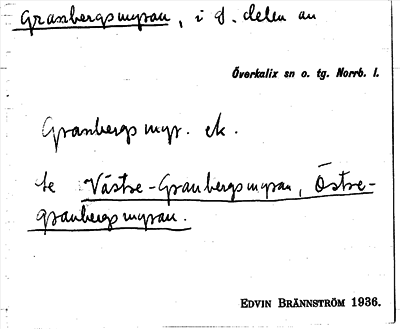 Granbergsmyran, i d. delen av
Överkalix sn o. tg. Norrb. l.
Granbergsmyr. ek.
se Västre-Granbergsmyran, Östre-
granbergsmyran.
EDVIN BRÄNNSTRÖM 1936.